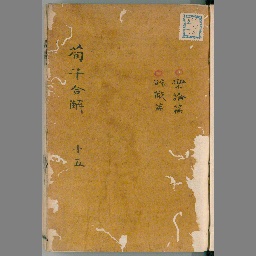 樂論篇
解蔽篇
荀子合解 十五